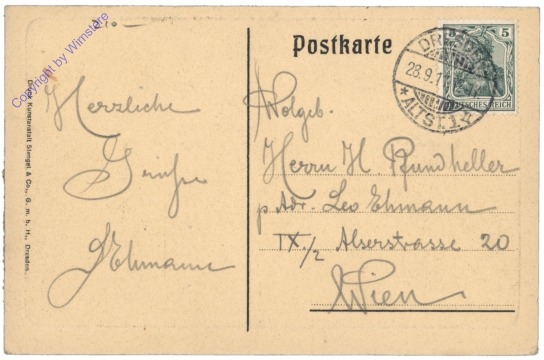 Postkarte
Herzliche
Grüße
LEhmann
Wolgeb.
Herrn H Pfundheller
p. Adr. Leo Ehmann
IX./2 Alserstrasse 20
Wien
5
DEUTSCHES REICH
DRESDEN
28.9.1
* ALTST. 14
Druck Kunstanstalt Stengel & Co., G. m. b. H., Dresden.
Copyright by Wimstore